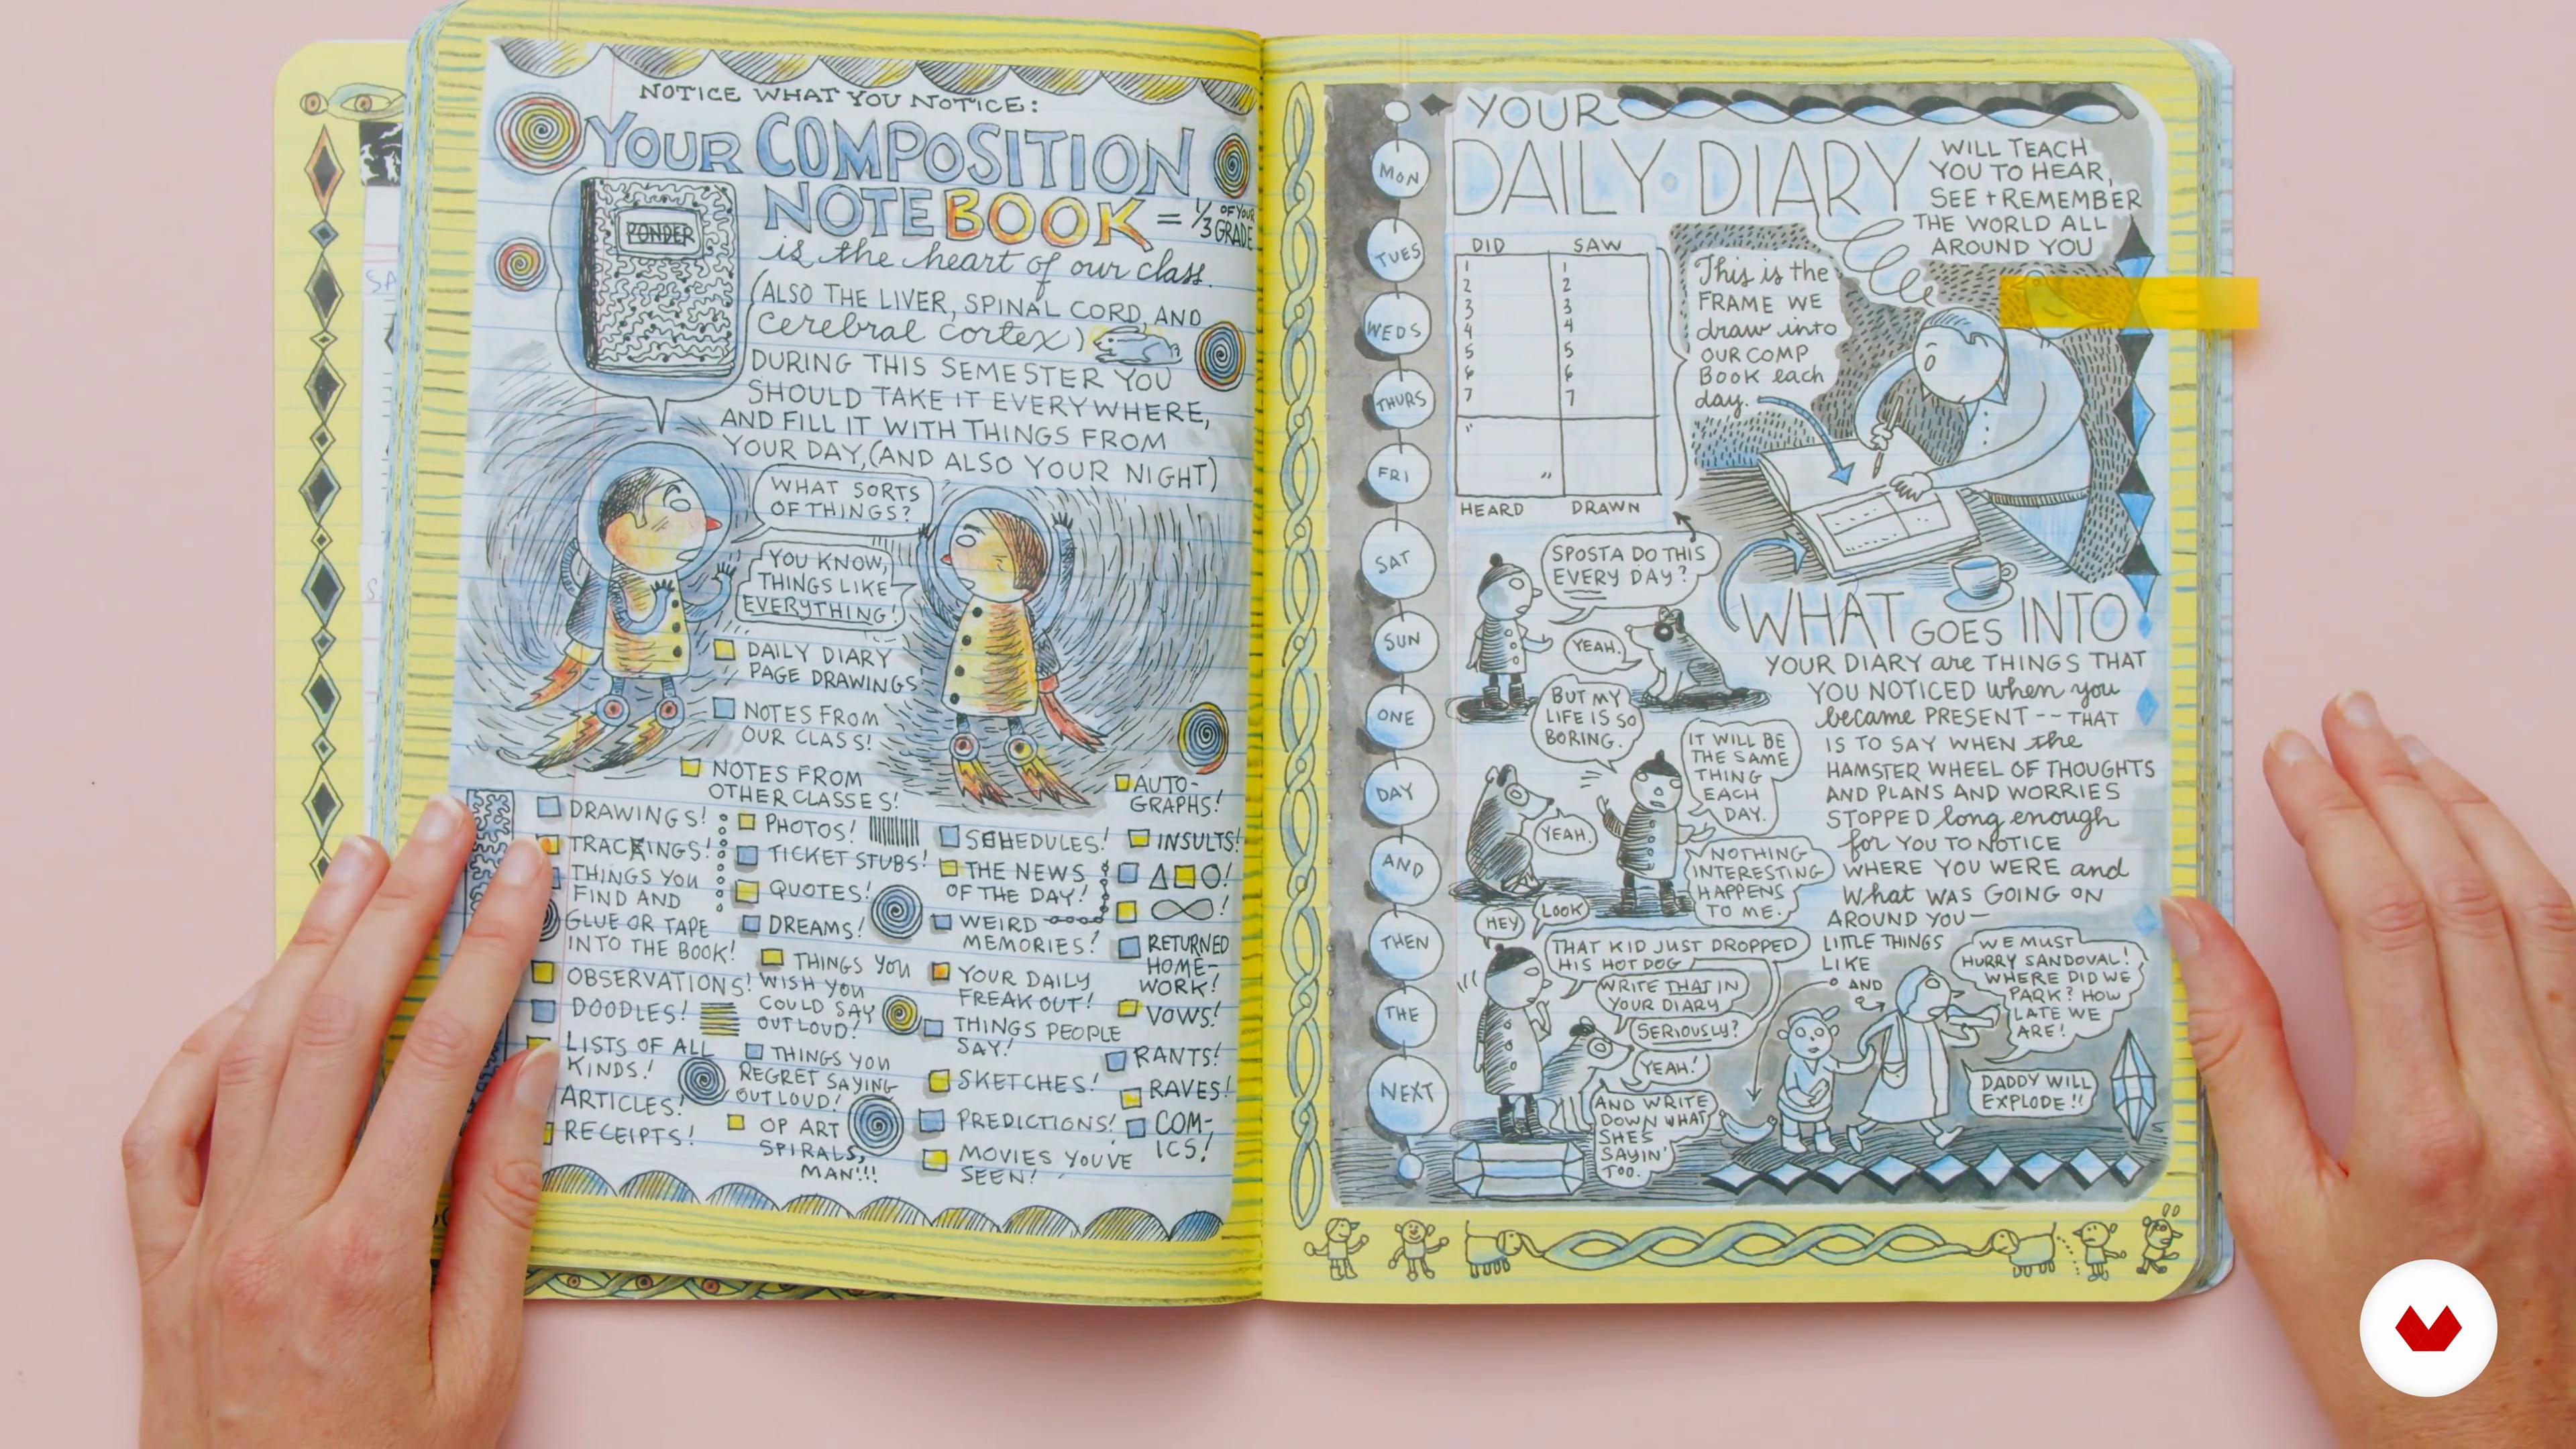 NOTICE WHAT YOU NOTICE:
YOUR COMPOSITION
NOTEBOOK = 1/3 OF YOUR GRADE
PONDER
is the heart of our class.
(ALSO THE LIVER, SPINAL CORD, AND
cerebral cortex)
DURING THIS SEMESTER YOU
SHOULD TAKE IT EVERYWHERE,
AND FILL IT WITH THINGS FROM
YOUR DAY, (AND ALSO YOUR NIGHT)
WHAT SORTS
OF THINGS?
YOU KNOW,
THINGS LIKE
EVERYTHING!
DAILY DIARY
PAGE DRAWINGS
NOTES FROM
OUR CLASS!
NOTES FROM
OTHER CLASSES!
DRAWINGS!
TRACKINGS!
THINGS YOU
FIND AND
GLUE OR TAPE
INTO THE BOOK!
OBSERVATIONS!
DOODLES!
LISTS OF ALL
KINDS!
ARTICLES!
RECEIPTS!
PHOTOS!
TICKET STUBS!
QUOTES!
DREAMS!
THINGS YOU
WISH YOU
COULD SAY
OUT LOUD!
THINGS YOU
REGRET SAYING
OUT LOUD!
OP ART
SPIRALS,
MAN!!!
SCHEDULES!
THE NEWS
OF THE DAY!
WEIRD
MEMORIES!
YOUR DAILY
FREAK OUT!
THINGS PEOPLE
SAY!
SKETCHES!
PREDICTIONS!
MOVIES YOU'VE
SEEN!
AUTO-
GRAPHS!
INSULTS!
△□○!
∞!
RETURNED
HOME-
WORK!
VOWS!
RANTS!
RAVES!
COM-
ICS!
MON
TUES
WEDS
THURS
FRI
SAT
SUN
ONE
DAY
AND
THEN
THE
NEXT
YOUR
DAILY DIARY
WILL TEACH
YOU TO HEAR,
SEE + REMEMBER
THE WORLD ALL
AROUND YOU
DID SAW
1 1
2 2
3 3
4 4
5 5
6 6
7 7
" "
HEARD DRAWN
This is the
FRAME WE
draw into
OUR COMP
BOOK each
day.
SPOSTA DO THIS
EVERY DAY?
YEAH.
BUT MY
LIFE IS SO
BORING.
IT WILL BE
THE SAME
THING
EACH
DAY.
YEAH.
NOTHING
INTERESTING
HAPPENS
TO ME.
HEY
LOOK
THAT KID JUST DROPPED
HIS HOT DOG
WRITE THAT IN
YOUR DIARY
SERIOUSLY?
YEAH!
AND WRITE
DOWN WHAT
SHES
SAYIN'
TOO.
WHAT GOES INTO
YOUR DIARY are THINGS THAT
YOU NOTICED when you
became PRESENT -- THAT
IS TO SAY WHEN the
HAMSTER WHEEL OF THOUGHTS
AND PLANS AND WORRIES
STOPPED long enough
for YOU TO NOTICE
WHERE YOU WERE and
what WAS GOING ON
AROUND YOU—
LITTLE THINGS
LIKE
AND
WE MUST
HURRY SANDOVAL!
WHERE DID WE
PARK? HOW
LATE WE
ARE!
DADDY WILL
EXPLODE!!